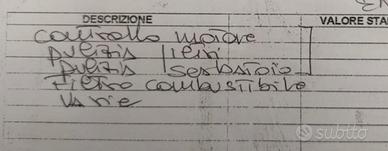 DESCRIZIONE
VALORE STA
controllo motore
pulizia
pulizia serbatoio
Filtro combustibile
Varie
subito